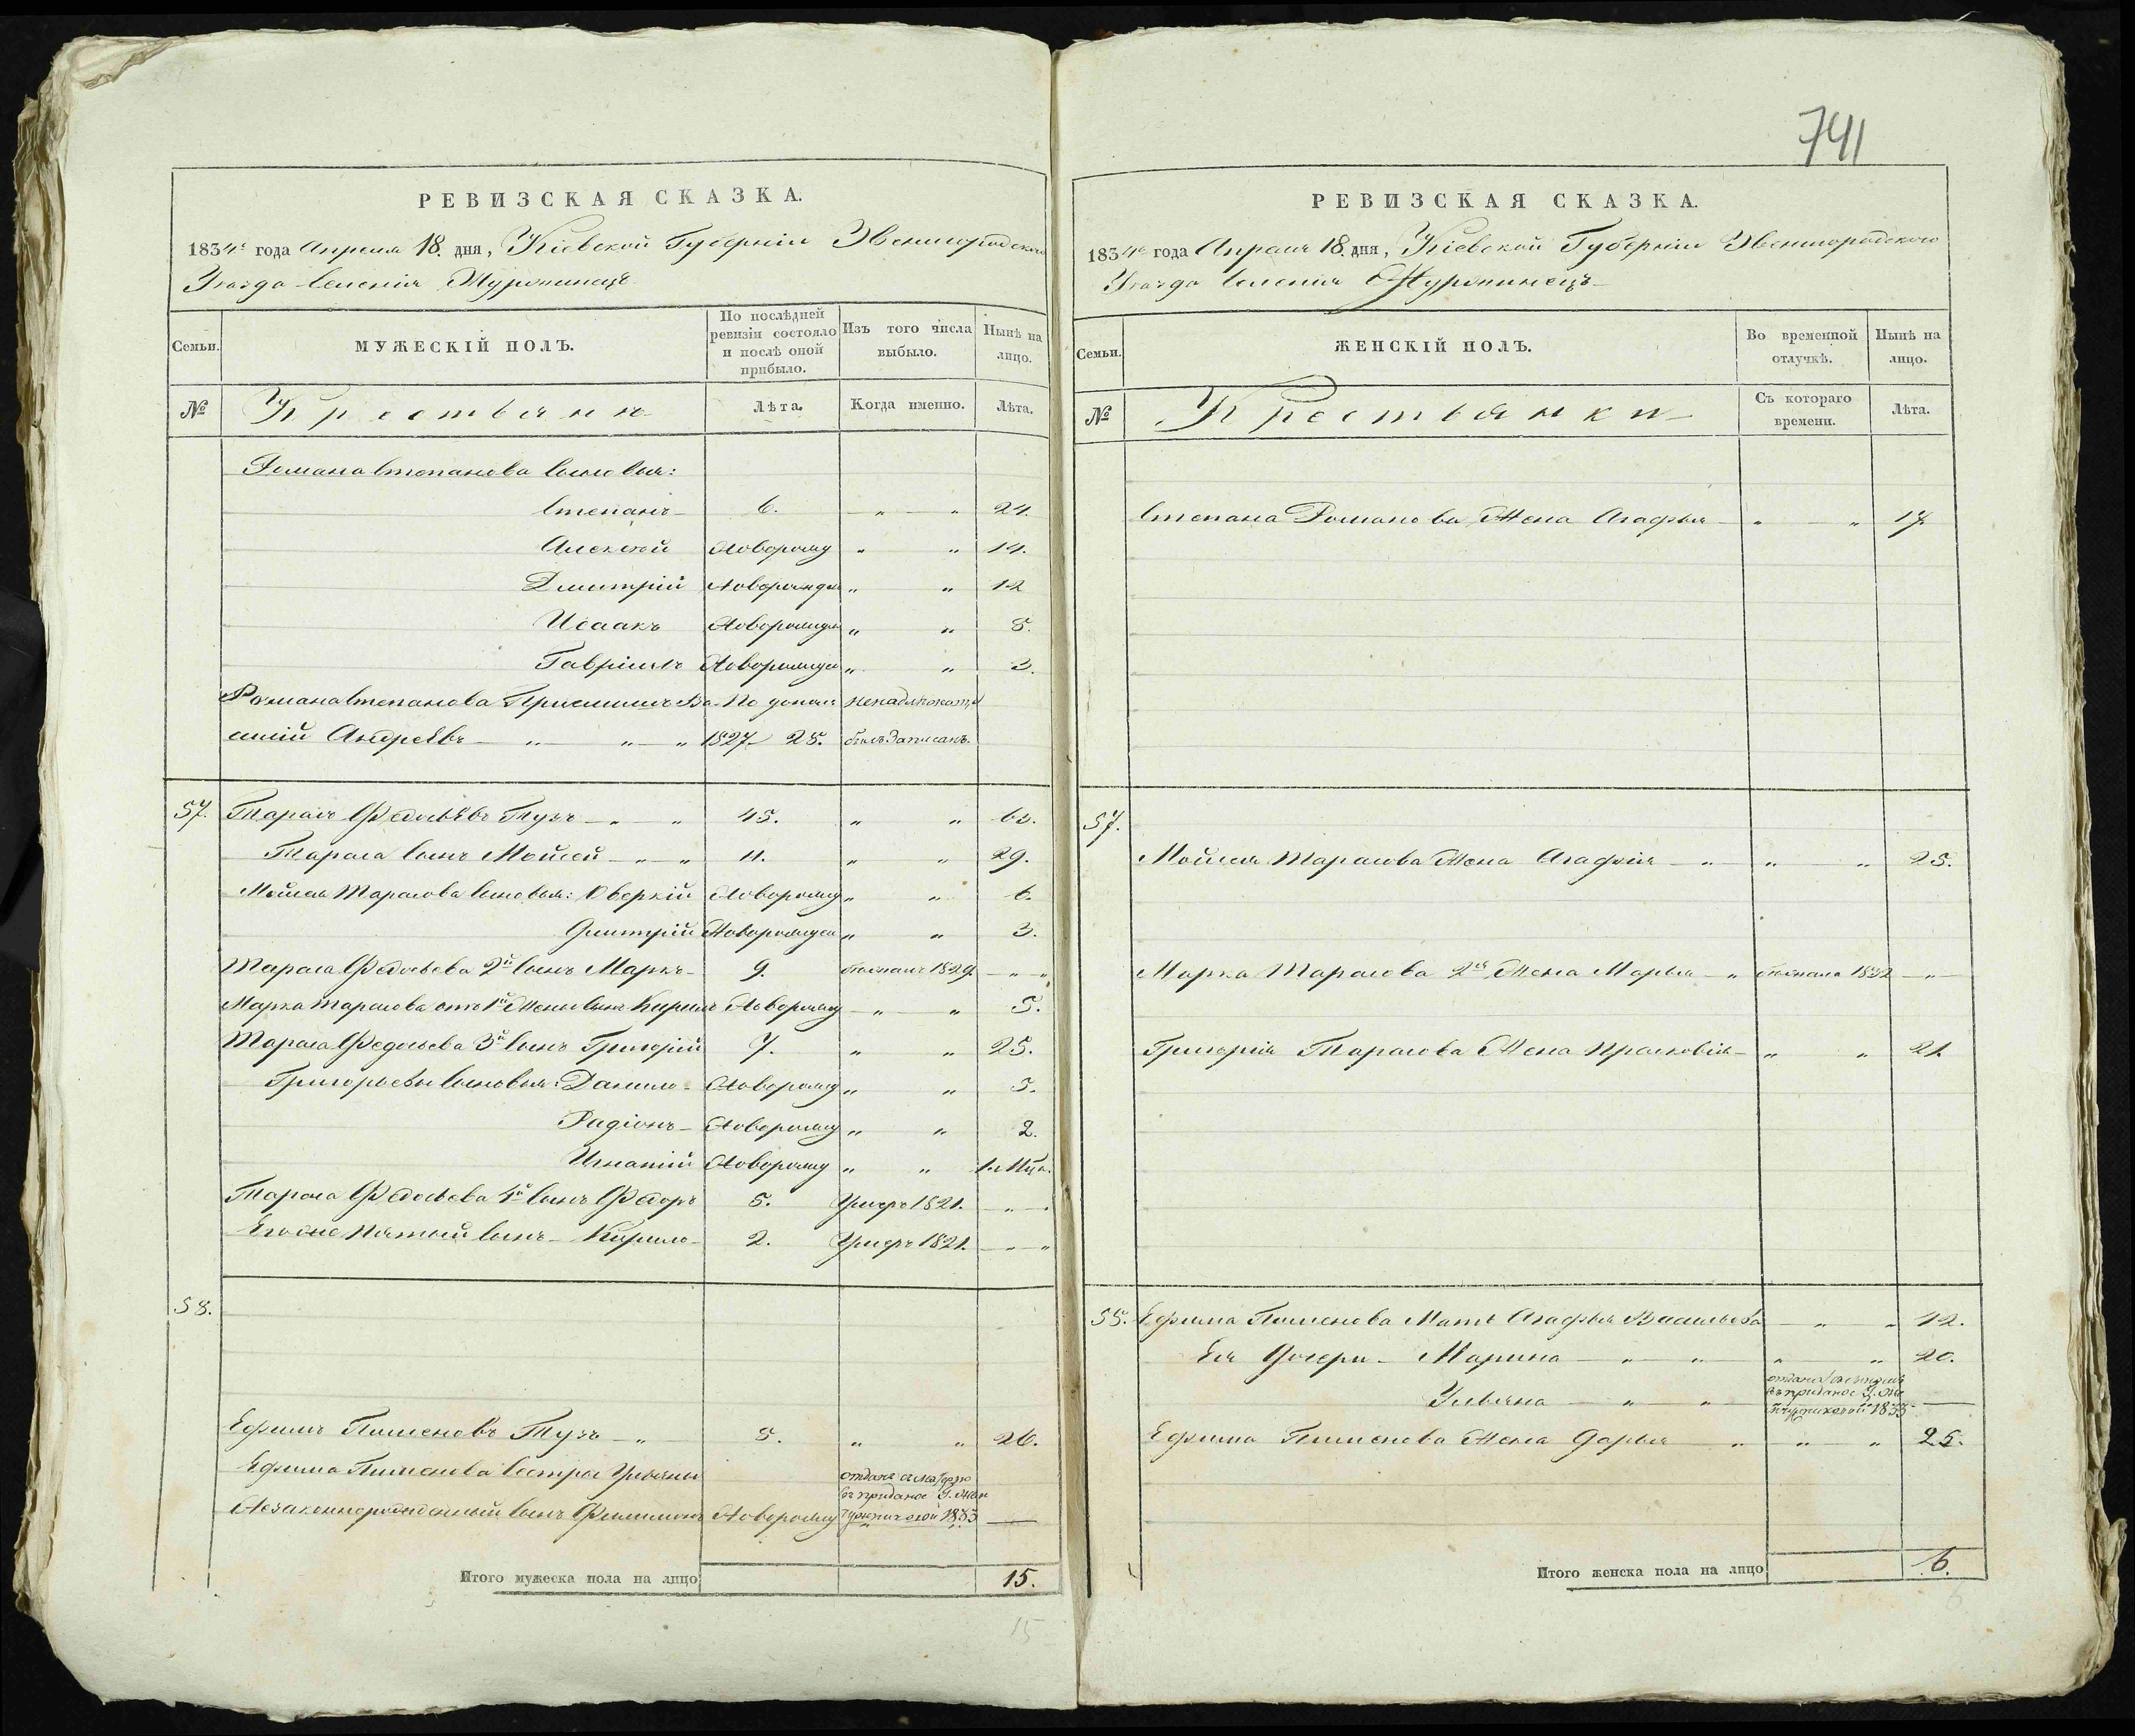 741
РЕВИЗСКАЯ СКАЗКА.
1834го года Апреля 18. дня, Кіевской Губерніи Звенигородского
Уезда Селенія Журжинецъ
Семьи.
МУЖЕСКІЙ ПОЛЪ.
По послѣдней ревизіи состояло и послѣ оной прибыло.
Изъ того числа выбыло.
Нынѣ на лицо.
№
Крестьяне
Лѣта.
Когда именно.
Лѣта.
Романа Степанова Сыновья:
Степанъ 6. " " 24.
Алексей Новорожд " " 14.
Дмитрій Новорожден " " 12
Исаакъ Новорожден " " 8.
Гавріилъ Новорожден " " 3.
Романа Степанова Приемышъ Ва По допол ненадлежаще
силій Андреевъ " " " 1827 25. былъ Записанъ.
57. Тарасъ Федосѣевъ Тузъ " " 45. " " 63.
Тараса Сынъ Мойсей " " 11. " " 29.
Мойсея Тарасова Сыновья: Оверкій Новорожд " " 6.
Дмитрій Новорожден " " 3.
Тараса Федосѣева 2й Сынъ Марко 9. 1829. " "
Марка Тарасова отъ 1й Жены Сынъ Кирило Новорожд " " 5.
Тараса Федосѣева 3й Сынъ Григорій 7. " " 25.
Григорьевы Сыновья: Данило Новорожд " " 5.
Радіонъ Новорожд " " 2.
Игнатій Новорожд " " 1.
Тараса Федосѣева 4й Сынъ Федоръ 5. Умеръ 1821. " "
Его же Пятый Сынъ Кирило 2. Умеръ 1821. " "
58.
Ефимъ Пименовъ Тузъ " 8. " " 26.
Ефима Пименова Сестры Ульяны отданъ съ матерью
въ приданое Г.
Незаконнорожденный Сынъ Филимонъ Новорожд 1833
Итого мужеска пола на лицо 15.
15
РЕВИЗСКАЯ СКАЗКА.
1834го года Апреля 18. дня, Кіевской Губерніи Звенигородского
Уезда Селенія Журжинецъ
Семьи.
ЖЕНСКІЙ ПОЛЪ.
Во временной отлучкѣ.
Нынѣ на лицо.
№
Крестьянки
Съ котораго времени.
Лѣта.
Степана Романова Жена Агафья " " 17.
57.
Мойсея Тарасова Жена Агафія " " " 25.
Марка Тарасова 2я Жена Марья " 1832 "
Григорія Тарасова Жена Прасковія " " 21.
58. Ефима Пименова Мать Агафья Васильева " " 42.
Ея Дочери Марина " " " " 20.
Ульяна " " отдана съ сыномъ
въ приданое Г.
1833
Ефима Пименова Жена Дарья " " " 25.
Итого женска пола на лицо 6.
6